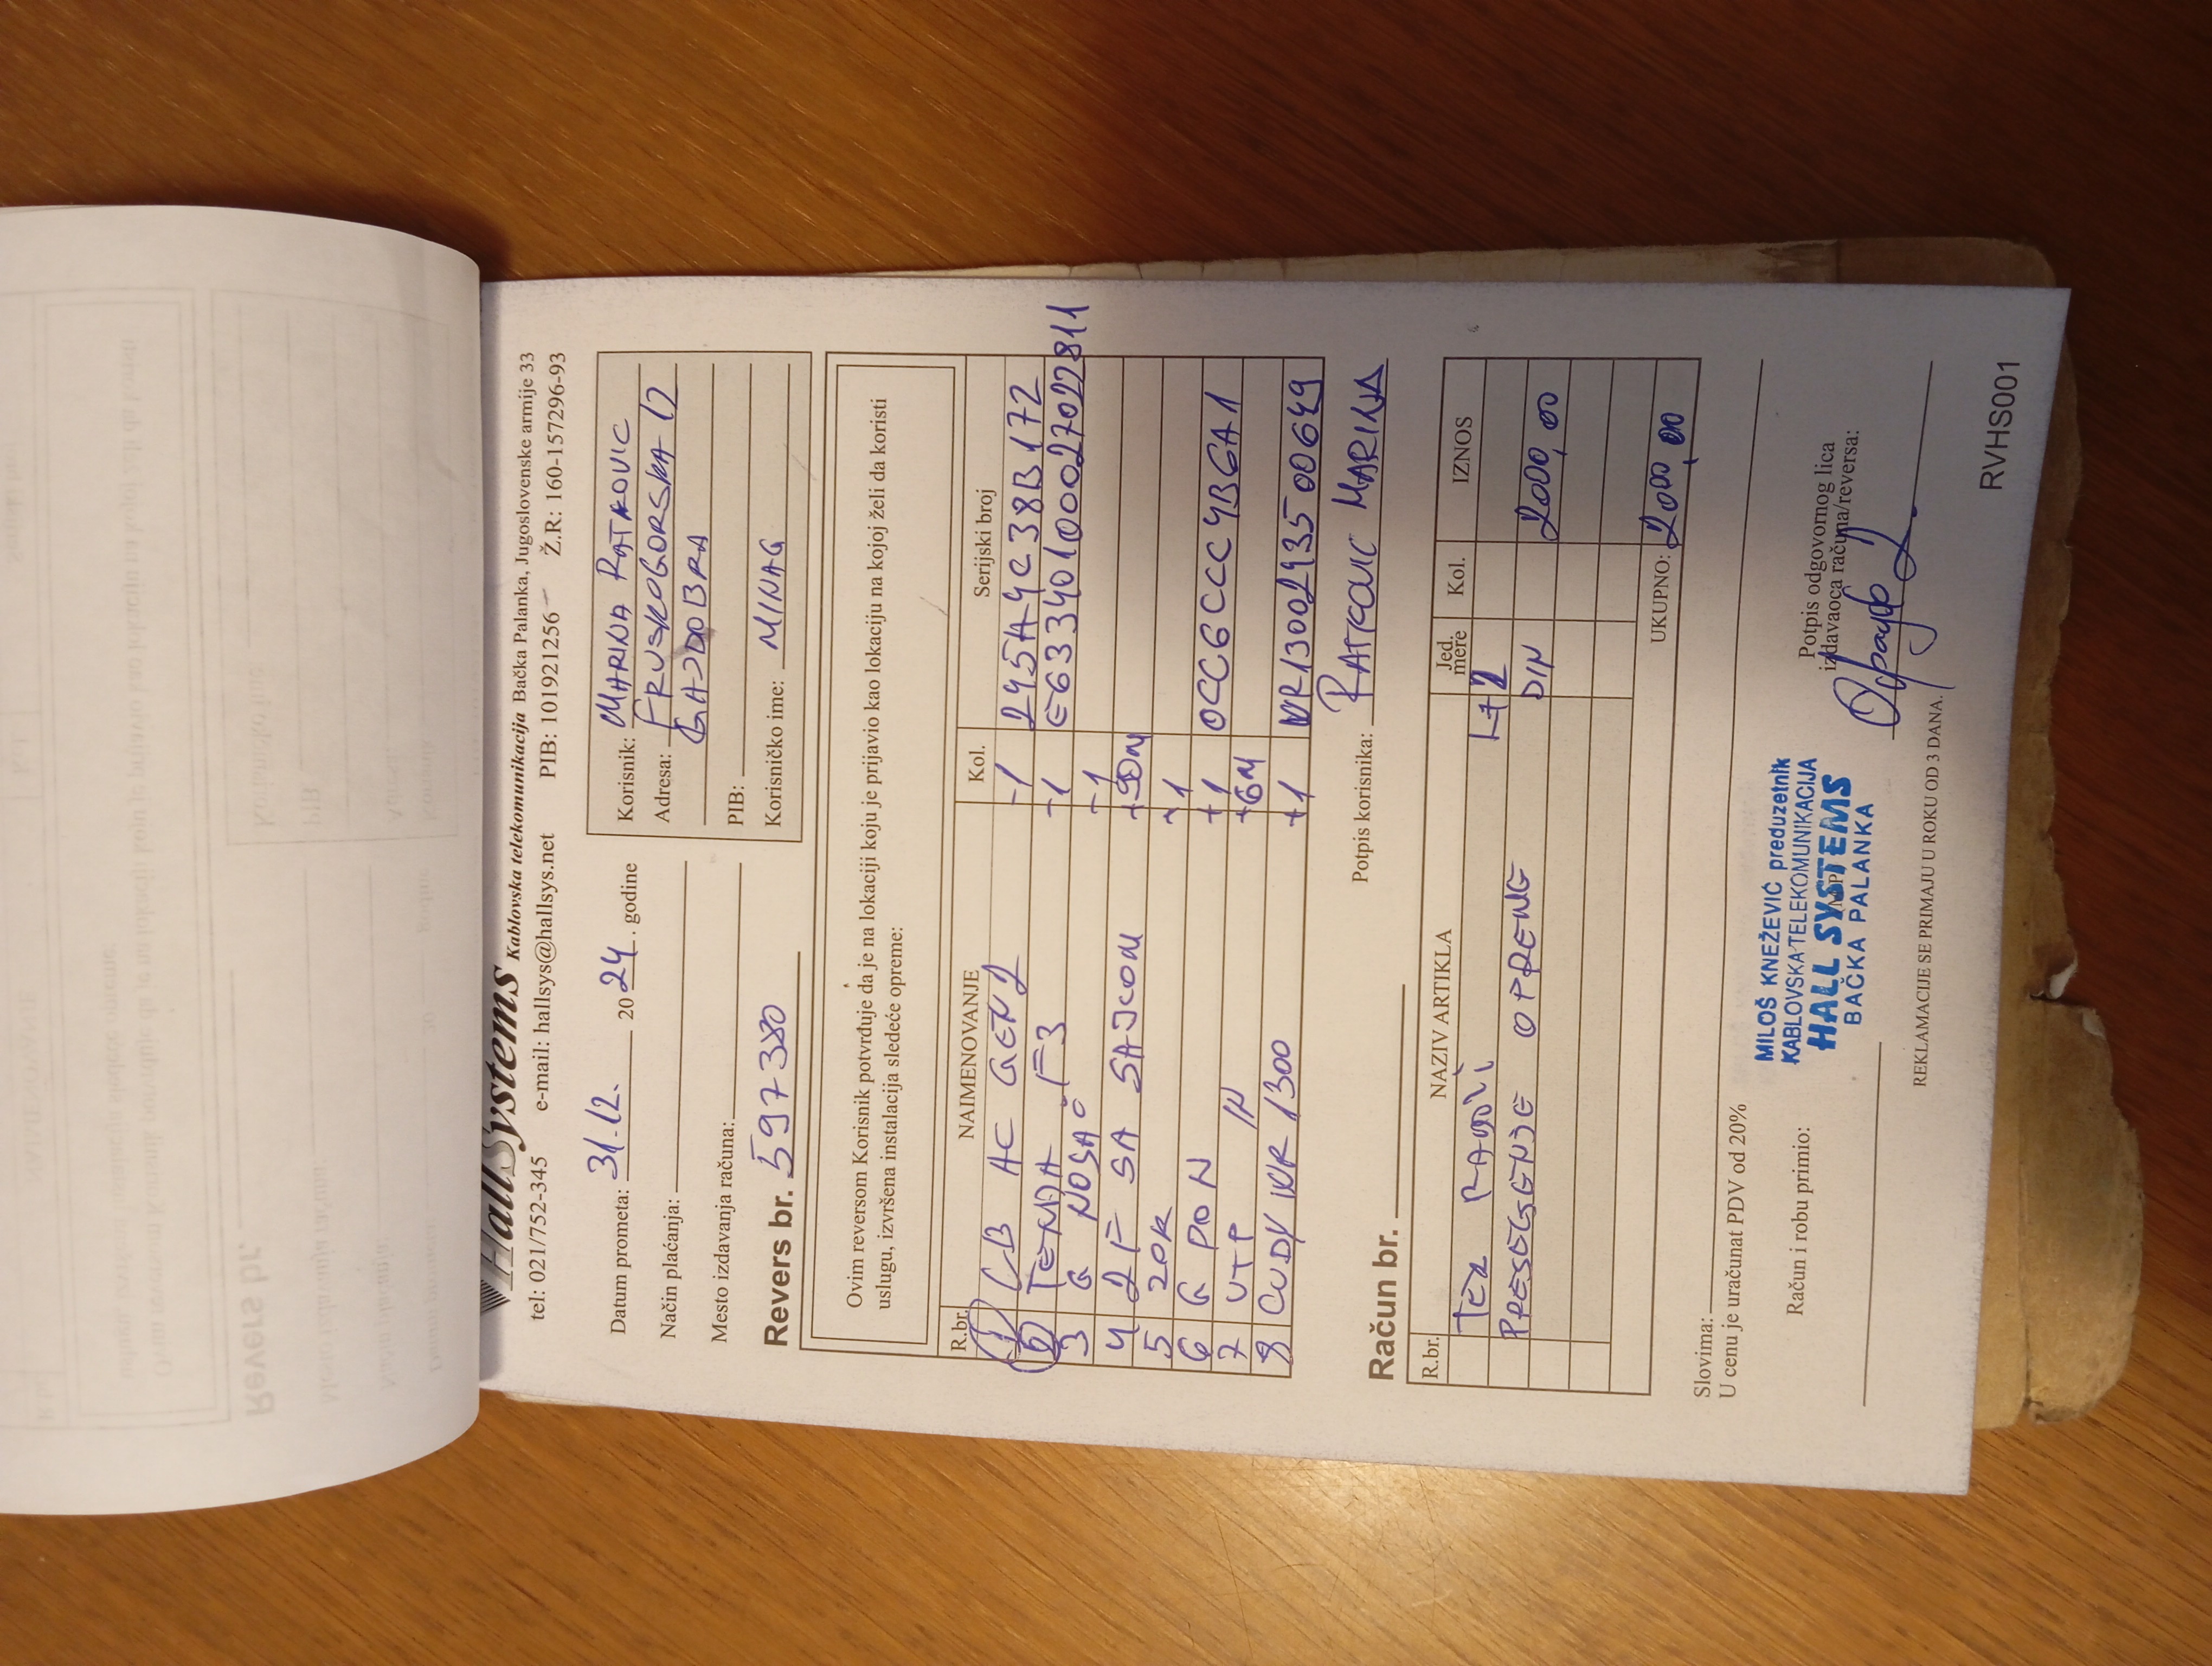 HallSystems Kablovska telekomunikacija Bačka Palanka, Jugoslovenske armije 33
tel: 021/752-345 e-mail: hallsys@hallsys.net PIB: 101921256 Ž.R: 160-157296-93
Datum prometa: 31.12. 2024. godine
Način plaćanja:
Mesto izdavanja računa:
Revers br. 597380
Korisnik: MARINA RATKOVIC
Adresa: FRUSKOGORSKA 12
GAJDOBRA
PIB:
Korisničko ime: MINAG
Ovim reversom Korisnik potvrđuje da je na lokaciji koju je prijavio kao lokaciju na kojoj želi da koristi
uslugu, izvršena instalacija sledeće opreme:
R.br. NAIMENOVANJE Kol. Serijski broj
1 LB AC GEN2 -1 245A4C38B172
2 TENDA F3 -1 E63340100027022811
3 G NOSAČ -1
4 2F SA SAJLOM +90M
5 ZOK
6 G PON +1 OCC6CCC4B6A1
7 UTP IN +6M
8 CUDY WR 1300 +1 WR1300243500649
Potpis korisnika: RATKOVIC MARINA
Račun br.
R.br. NAZIV ARTIKLA Jed. mere Kol. IZNOS
DIN 2000,00
UKUPNO: 2000,00
Slovima:
U cenu je uračunat PDV od 20%
Račun i robu primio:
MILOŠ KNEŽEVIĆ preduzetnik
KABLOVSKA TELEKOMUNIKACIJA
HALL SYSTEMS
BAČKA PALANKA
Potpis odgovornog lica
izdavaoca računa/reversa:
REKLAMACIJE SE PRIMAJU U ROKU OD 3 DANA.
RVHS001